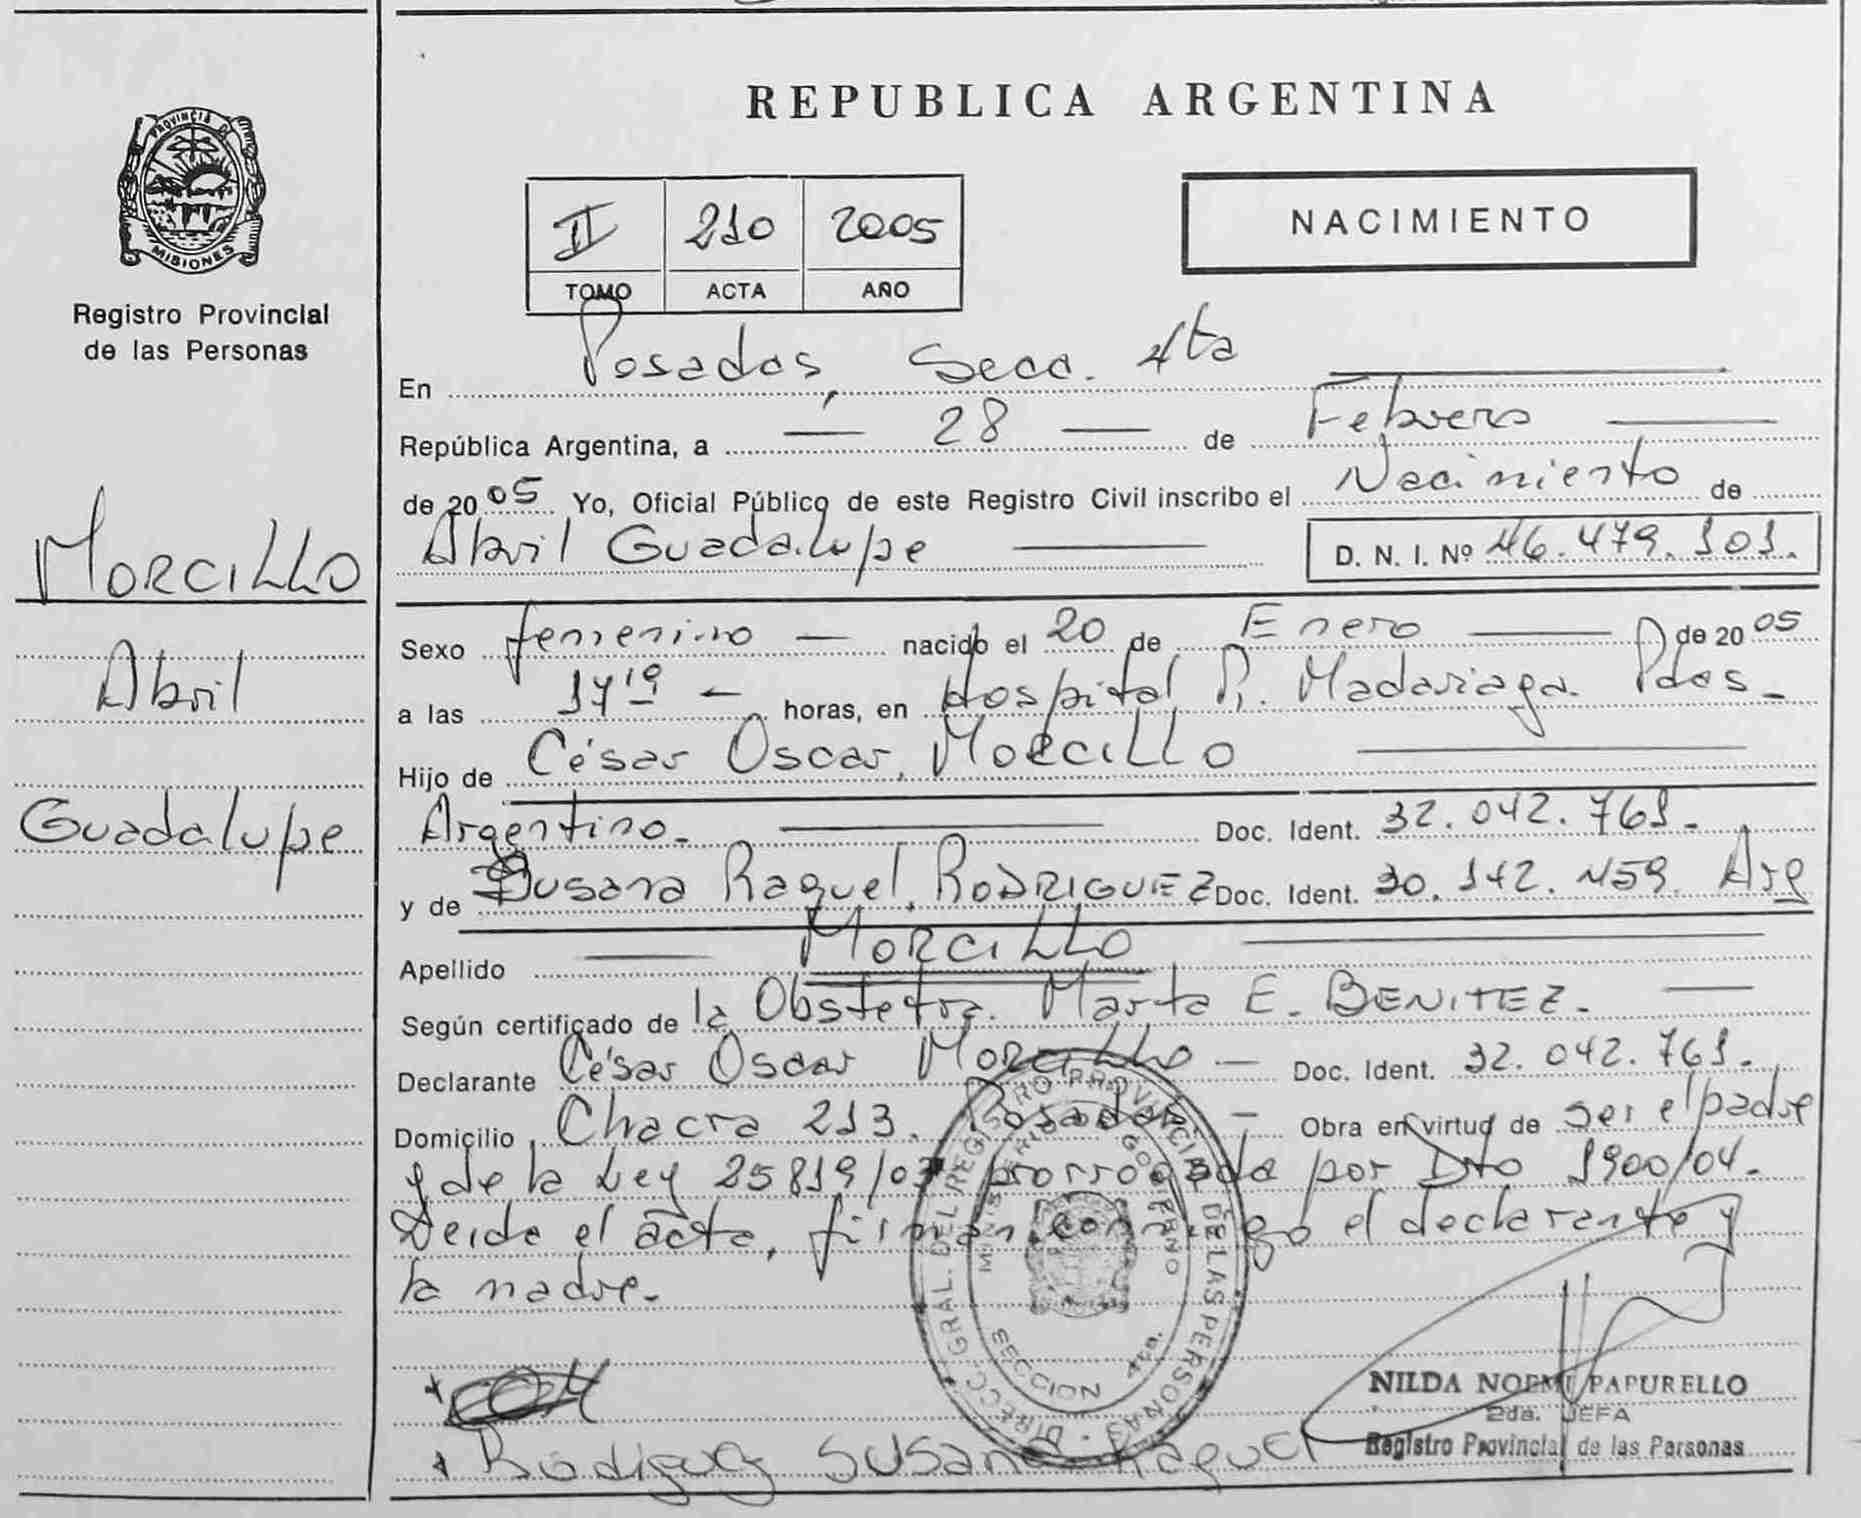 REPUBLICA ARGENTINA
PROVINCIA DE
MISIONES
Registro Provincial
de las Personas
II 210 2005
TOMO ACTA AÑO
NACIMIENTO
MORCILLO
Abril
Guadalupe
En Posadas, Secc. 4ta
República Argentina, a 28 de Febrero
de 2005 Yo, Oficial Público de este Registro Civil inscribo el Nacimiento de
Abril Guadalupe D. N. I. Nº 46.479.101.
Sexo femenino nacido el 20 de Enero de 2005
a las 17 10 horas, en Hospital R. Madariaga. Pdas.
Hijo de César Oscar, MORCILLO
Argentino. Doc. Ident. 32.042.761.
y de Susana Raquel, RODRIGUEZ Doc. Ident. 30.142.459. Arg
Apellido MORCILLO
Según certificado de la Obstetra. Marta E. BENITEZ.
Declarante César Oscar MORCILLO Doc. Ident. 32.042.761.
Domicilio Chacra 213. Posadas. Obra en virtud de ser el padre
y de la Ley 25819/03 prorrogada por Dto 1900/04.
Leida el acta, firman conmigo el declarante y
la madre.
DIRECC. GRAL. DEL REGISTRO PROVINCIAL DE LAS PERSONAS
MINISTERIO DE GOBIERNO
SECCION 4ta.
Rodriguez Susana Raquel
NILDA NOEMI PAPURELLO
2da. JEFA
Registro Provincial de las Personas